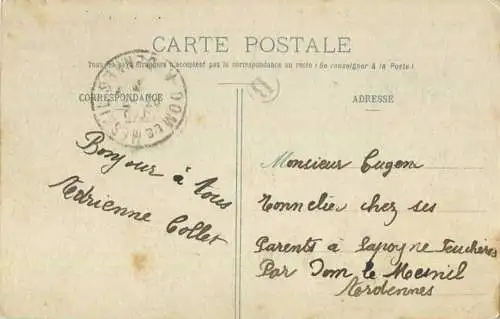 CARTE POSTALE
Tous les pays étrangers n'acceptent pas la correspondance au recto (Se renseigner à la Poste)
CORRESPONDANCE
ADRESSE
Bonjour à tous
Adrienne Collet
Monsieur Eugene
Tonnelier chez ses
Parents à Sapogne Feuchères
Par Dom le Mesnil
Ardennes